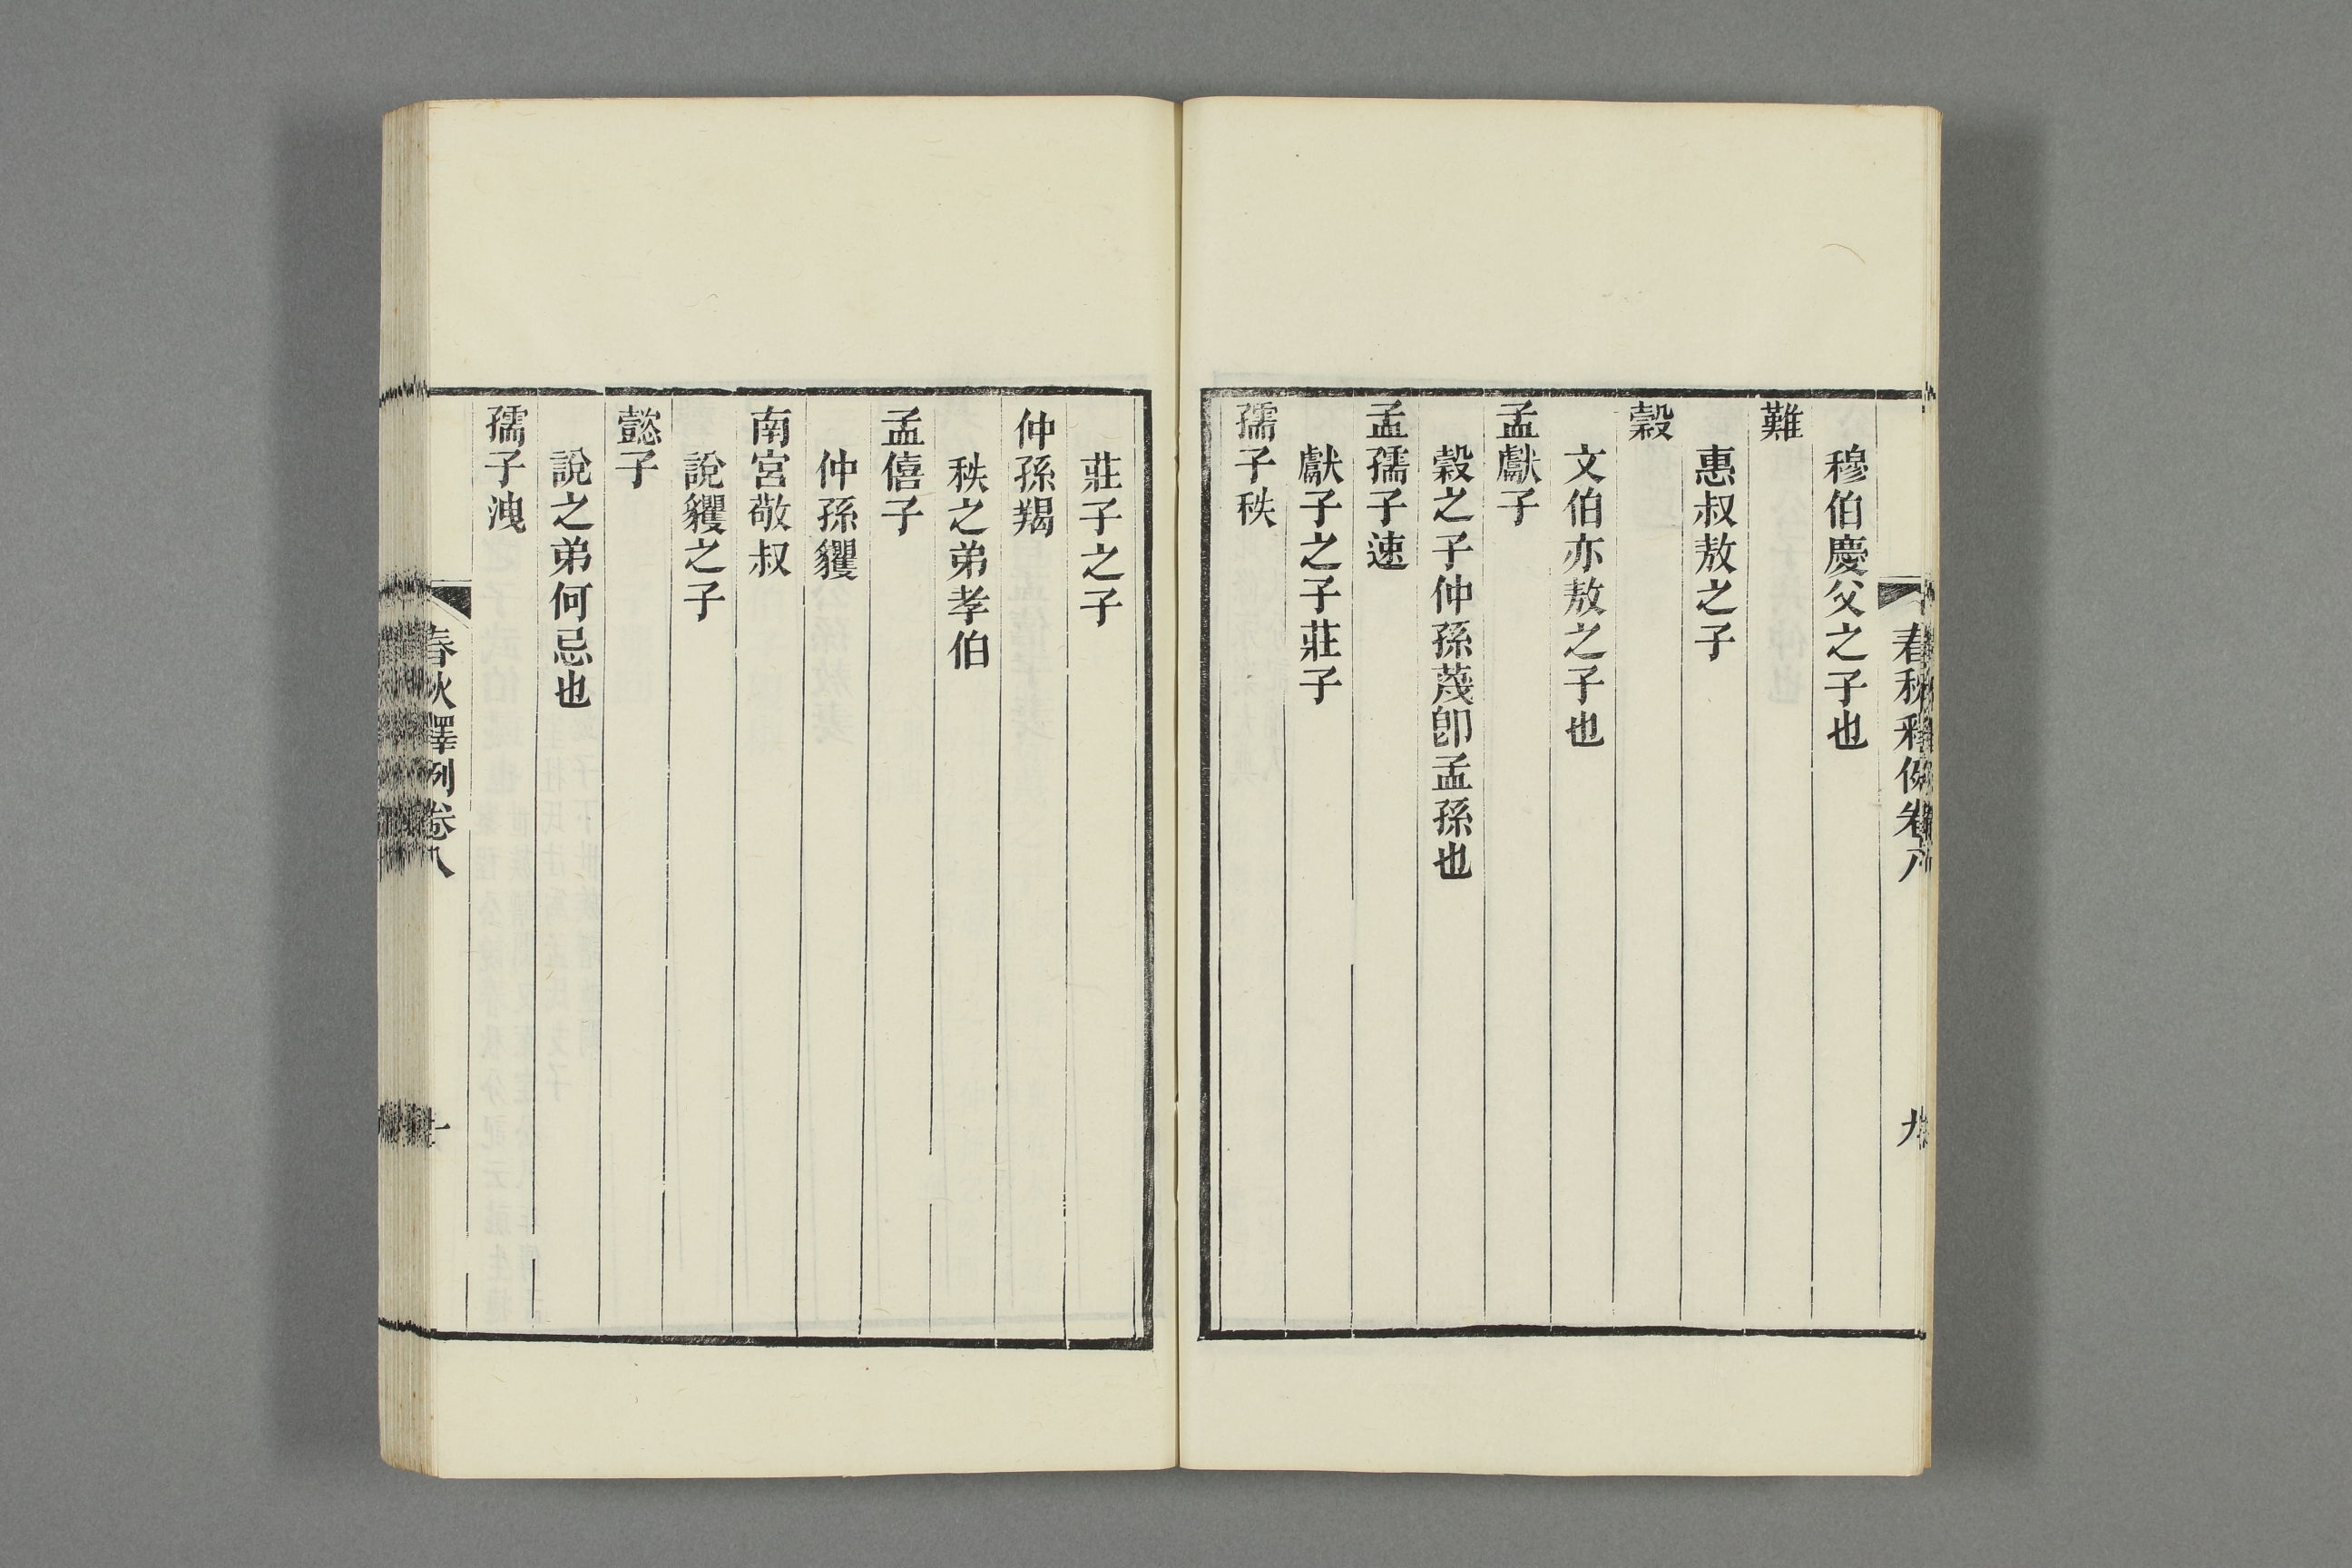 春秋釋例卷八
九
穆伯慶父之子也
難
惠叔敖之子
穀
文伯亦敖之子也
孟獻子
穀之子仲孫蔑卽孟孫也
孟孺子速
獻子之子莊子
孺子秩
莊子之子
仲孫羯
秩之弟孝伯
孟僖子
仲孫貜
南宮敬叔
說貜之子
懿子
說之弟何忌也
孺子洩
春秋釋例卷八